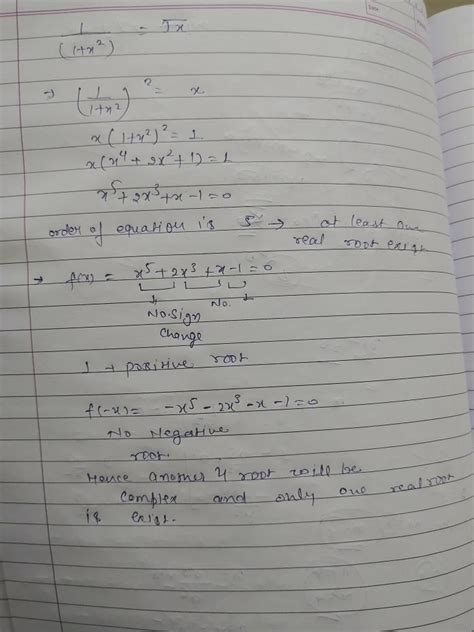 1/(1+x²) = √x
→ (1/1+x²)² = x
x(1+x²)² = 1
x(x⁴ + 2x² + 1) = 1
x⁵ + 2x³ + x - 1 = 0
order of equation is 5 → at least one
real root exist
→ f(x) = x⁵ + 2x³ + x - 1 = 0
No. sign No.
change
1 → positive root
f(-x) = -x⁵ - 2x³ - x - 1 = 0
No Negative
root
Hence another 4 root will be
complex and only one real root
is exist.